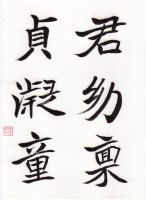 君幼稟
貞凝童